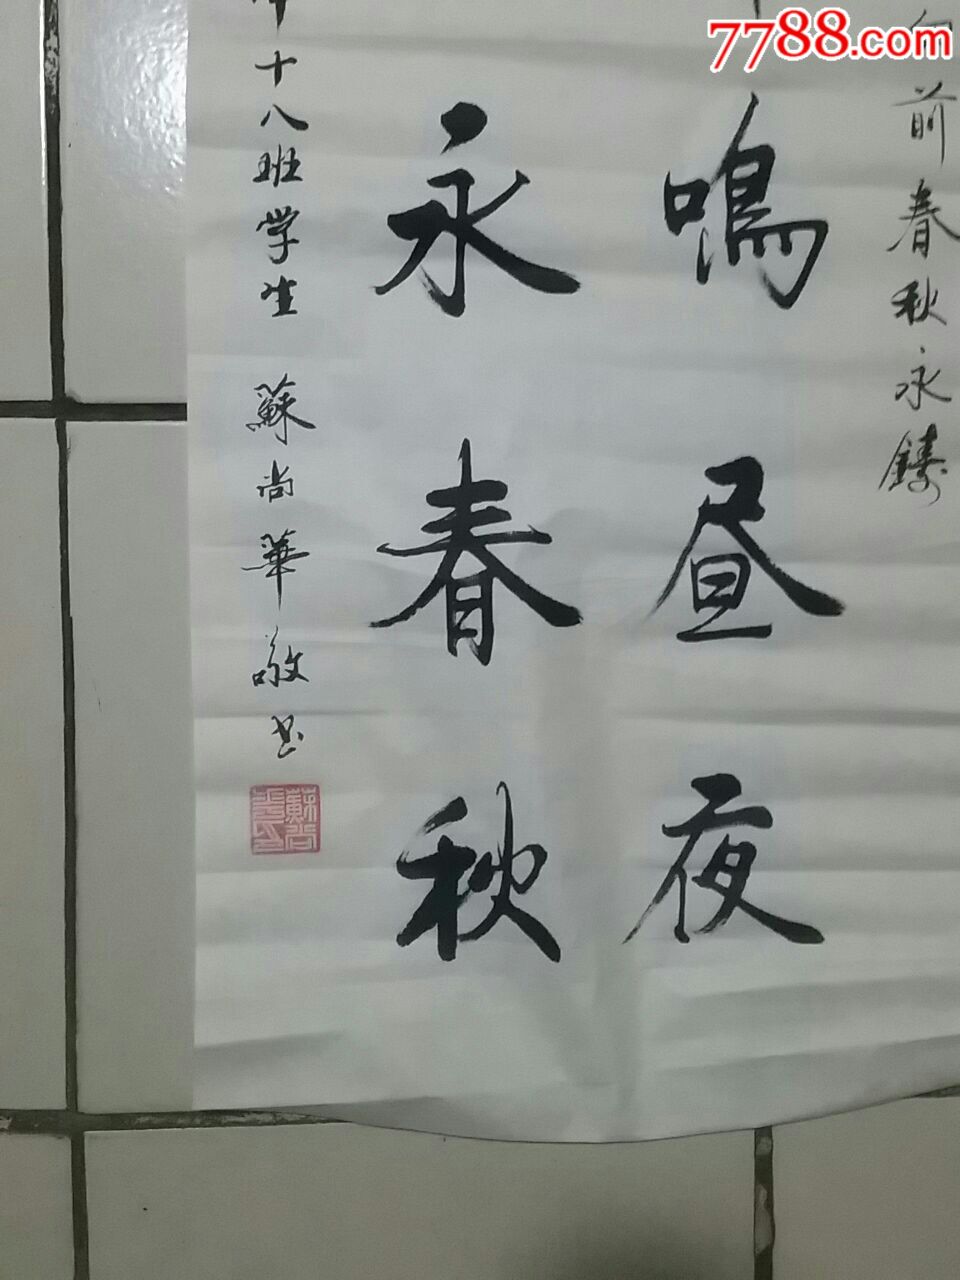 7788.com
前春秋永鑄
鳴昼夜
永春秋
十八班学生 蘇尚華敬书